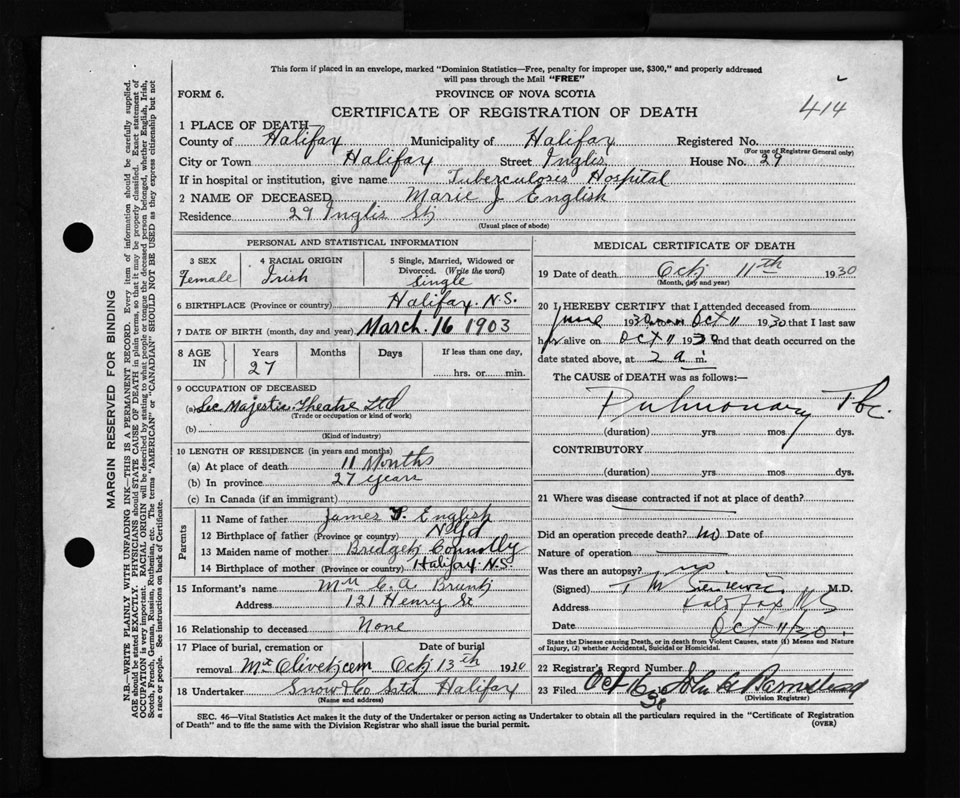 This form if placed in an envelope, marked "Dominion Statistics—Free, penalty for improper use, $300," and properly addressed
will pass through the Mail "FREE"
FORM 6.
PROVINCE OF NOVA SCOTIA
414
CERTIFICATE OF REGISTRATION OF DEATH
1 PLACE OF DEATH
County of Halifax Municipality of Halifax Registered No.
(For use of Registrar General only)
City or Town Halifax Street Inglis House No. 29
If in hospital or institution, give name Tuberculoses Hospital
2 NAME OF DECEASED Marie J English
Residence 29 Inglis St
(Usual place of abode)
PERSONAL AND STATISTICAL INFORMATION
3 SEX Female
4 RACIAL ORIGIN Irish
5 Single, Married, Widowed or
Divorced. (Write the word)
Single
6 BIRTHPLACE (Province or country) Halifax N.S.
7 DATE OF BIRTH (month, day and year) March. 16 1903
8 AGE IN
Years Months Days If less than one day,
27
hrs. or min.
9 OCCUPATION OF DECEASED
(a) Sec Majestic Theatre Ltd
(Trade or occupation or kind of work)
(b)
(Kind of industry)
10 LENGTH OF RESIDENCE (in years and months)
(a) At place of death 11 Months
(b) In province 27 years
(c) In Canada (if an immigrant)
Parents
11 Name of father James English
12 Birthplace of father (Province or country) Nfld
13 Maiden name of mother Bridget Connolly
14 Birthplace of mother (Province or country) Halifax N.S.
15 Informant's name C. A.
Address 121 Henry St
16 Relationship to deceased None
17 Place of burial, cremation or Date of burial
removal Mt Olivet cem Oct 13th 1930
18 Undertaker Snow & Co Halifax
(Name and address)
MEDICAL CERTIFICATE OF DEATH
19 Date of death Oct 11th 1930
(Month, day and year)
20 I HEREBY CERTIFY that I attended deceased from
June 1930 Oct 11 1930 that I last saw
her alive on Oct 11 1930 and that death occurred on the
date stated above, at 2 a m.
The CAUSE OF DEATH was as follows:—
Pulmonary Tbc.
(duration) yrs mos dys.
CONTRIBUTORY
(duration) yrs. mos. dys.
21 Where was disease contracted if not at place of death?
Did an operation precede death? no Date of
Nature of operation
Was there an autopsy? no.
(Signed) T M M.D.
Address Halifax NS
Date Oct 11/30.
State the Disease causing Death, or in death from Violent Causes, state (1) Means and Nature
of Injury, (2) whether Accidental, Suicidal or Homicidal.
22 Registrar's Record Number
23 Filed Oct 16 30 John
(Division Registrar)
SEC. 46—Vital Statistics Act makes it the duty of the Undertaker or person acting as Undertaker to obtain all the particulars required in the "Certificate of Registration
of Death" and to file the same with the Division Registrar who shall issue the burial permit.
(OVER)
MARGIN RESERVED FOR BINDING
N.B.—WRITE PLAINLY WITH UNFADING INK—THIS IS A PERMANENT RECORD. Every item of information should be carefully supplied.
AGE should be stated EXACTLY. PHYSICIANS should STATE CAUSE OF DEATH in plain terms, so that it may be properly classified. Exact statement of
OCCUPATION is very important. RACIAL ORIGIN will be described by stating to what people or tongue the deceased person belonged, whether English, Irish,
Scotch, French, German, Russian, Ruthenian, etc. The terms "AMERICAN" or "CANADIAN" SHOULD NOT BE USED as they express citizenship but not
a race or people. See instructions on back of Certificate.